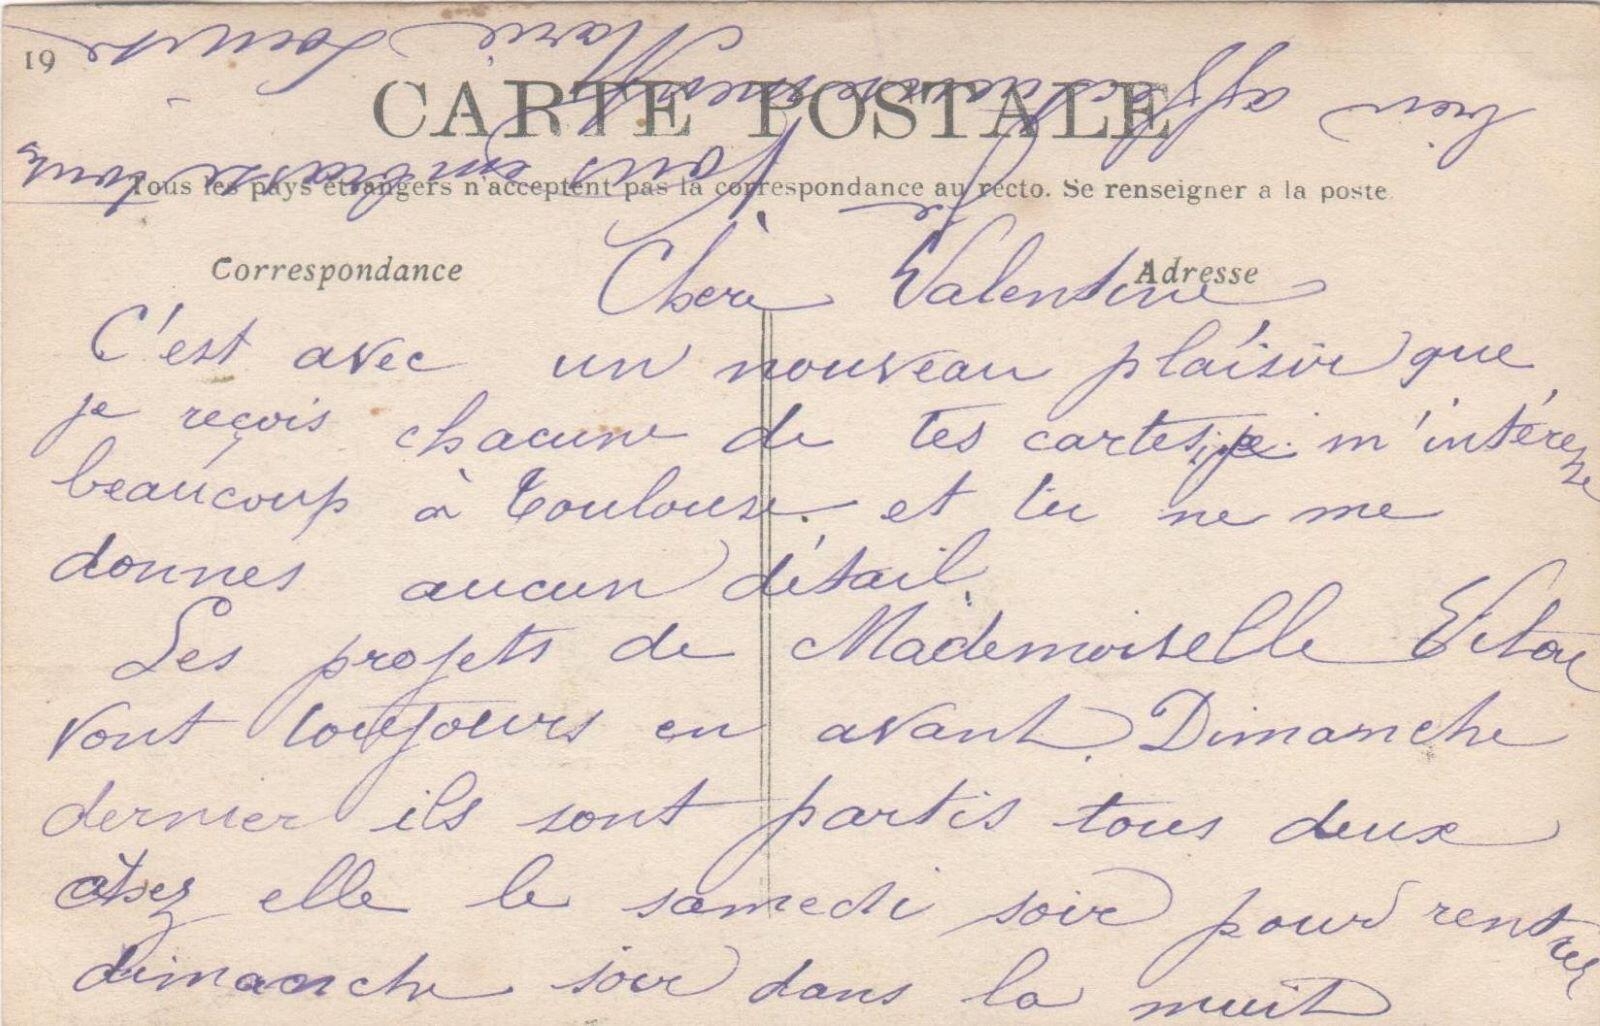 19
CARTE POSTALE
Tous les pays étrangers n'acceptent pas la correspondance au recto. Se renseigner a la poste
Correspondance
Adresse
Chère Valentine
C'est avec un nouveau plaisir que
je reçois chacune de tes cartes, je m'intéresse
beaucoup à Toulouse et tu ne me
donnes aucun détail.
Les projets de Mademoiselle
vont toujours en avant. Dimanche
dernier ils sont partis tous deux
chez elle le samedi soir pour rentrer
dimanche soir dans la nuit
Je
vous embrasse tous
bien affectueusement
Marie Louise